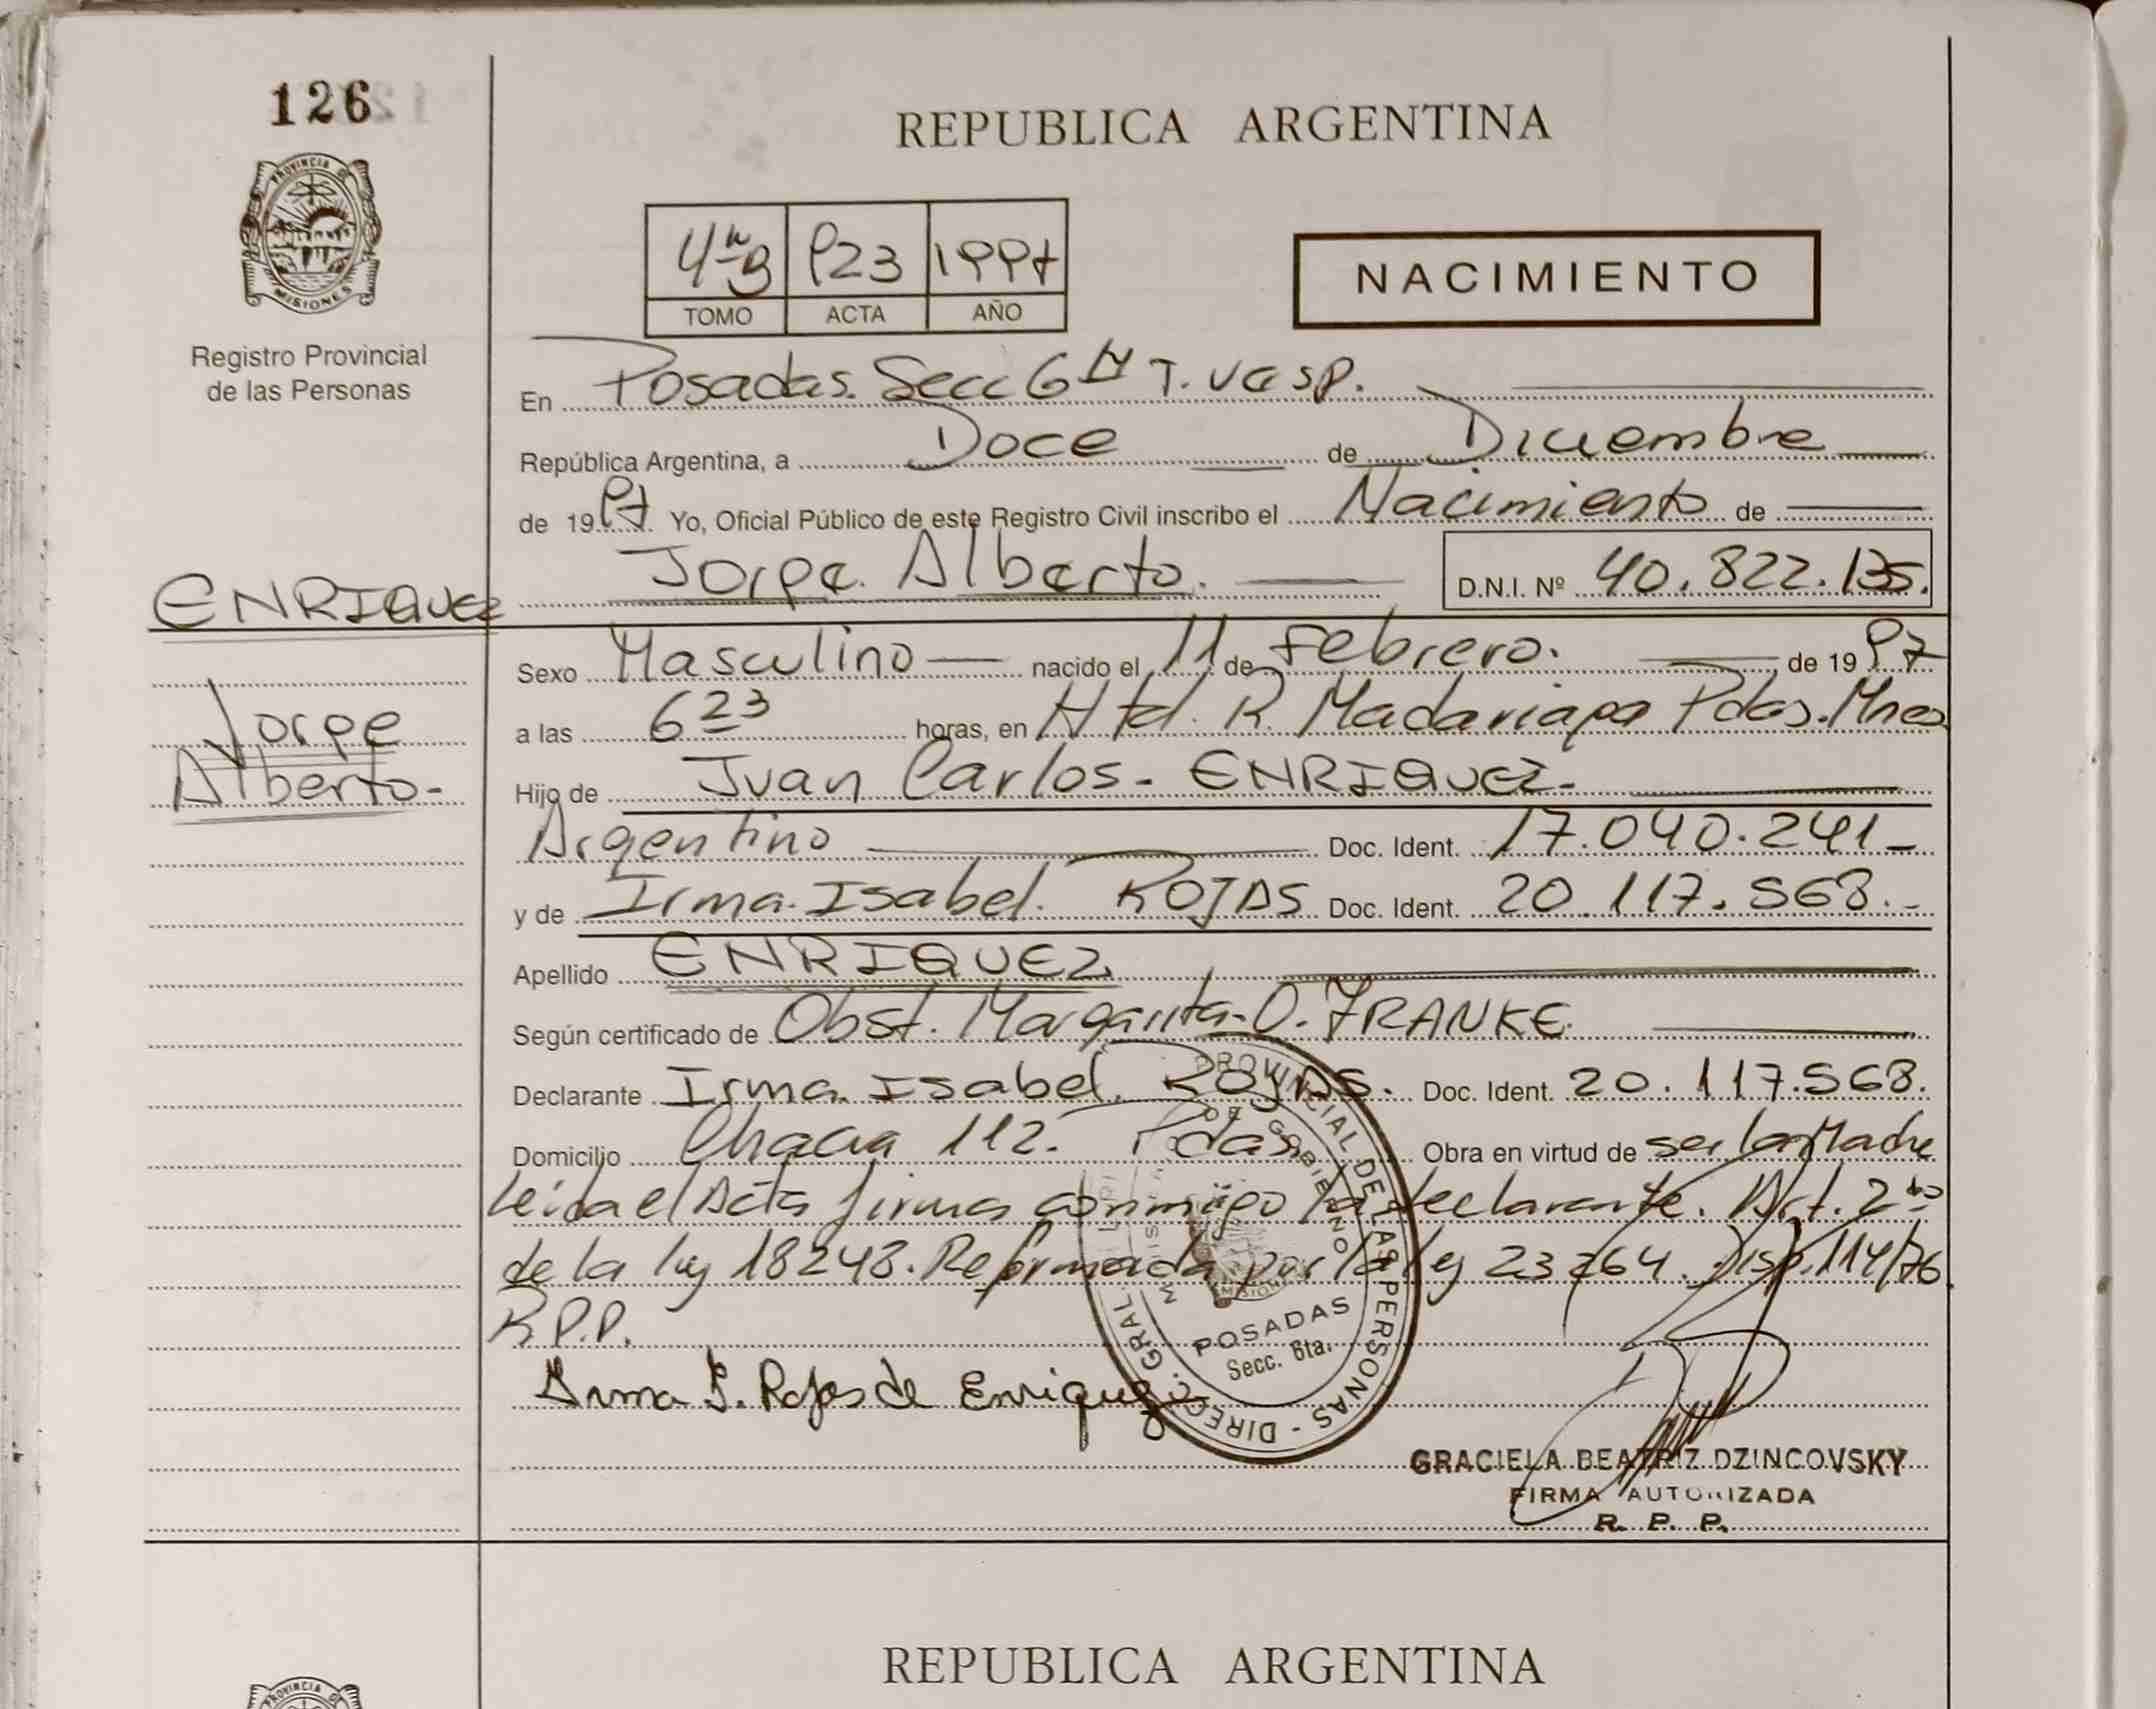 126
REPUBLICA ARGENTINA
PROVINCIA DE
MISIONES
Registro Provincial
de las Personas
923 1997
TOMO ACTA AÑO
NACIMIENTO
En Posadas. Secc 6ta T. Vesp.
República Argentina, a Doce de Diciembre
de 1997. Yo, Oficial Público de este Registro Civil inscribo el Nacimiento de
Jorge Alberto. D.N.I. Nº 40.822.135.
ENRIQUEZ
Jorge
Alberto-
Sexo Masculino nacido el 11 de Febrero. de 1997
a las 6 23 horas, en R. Madariaga Pdas. Mnes
Hijo de Juan Carlos- ENRIQUEZ-
Argentino Doc. Ident. 17.040.241-
y de Irma Isabel. ROJAS Doc. Ident. 20.117.568.-
Apellido ENRIQUEZ
Según certificado de Obst. Margarita O. FRANKE
Declarante Irma Isabel. ROJAS. Doc. Ident. 20.117.568.
Domicilio Chacra 112. Pdas Obra en virtud de ser la Madre
Leida el Acta firma conmigo la declarante. Art. 2do
de la ley 18248. Reformada por la ley 23264. Disp. 114/76
R.P.P.
Irma I. Rojas de Enriquez
DIRECC. GRAL. PROVINCIAL DE LAS PERSONAS
DE GOBIERNO
POSADAS
Secc. 6ta.
GRACIELA BEATRIZ DZINCOVSKY
FIRMA AUTORIZADA
R. P. P.
REPUBLICA ARGENTINA
PROVINCIA